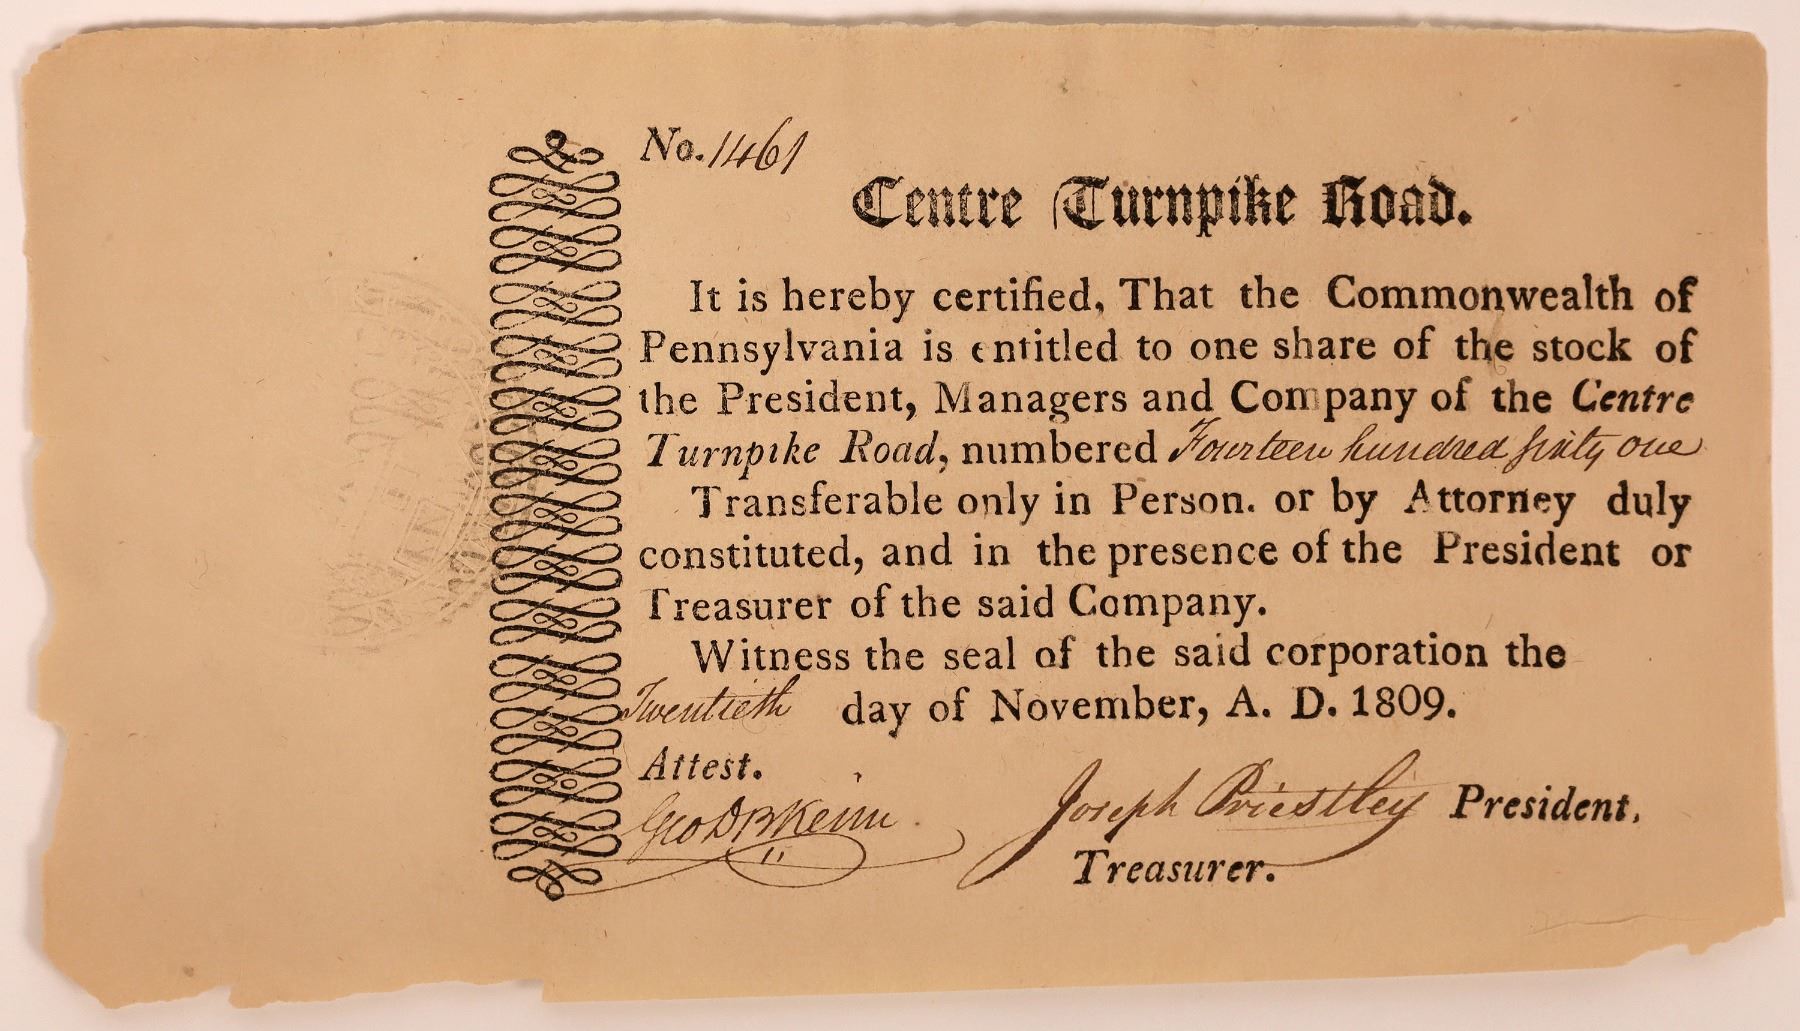 No. 1461
Centre Turnpike Road.
It is hereby certified, That the Commonwealth of
Pennsylvania is entitled to one share of the stock of
the President, Managers and Company of the Centre
Turnpike Road, numbered Fourteen hundred sixty one
Transferable only in Person. or by Attorney duly
constituted, and in the presence of the President or
Treasurer of the said Company.
Witness the seal of the said corporation the
Twentieth day of November, A. D. 1809.
Attest.
Geo D B Keim Joseph Priestley President,
Treasurer.